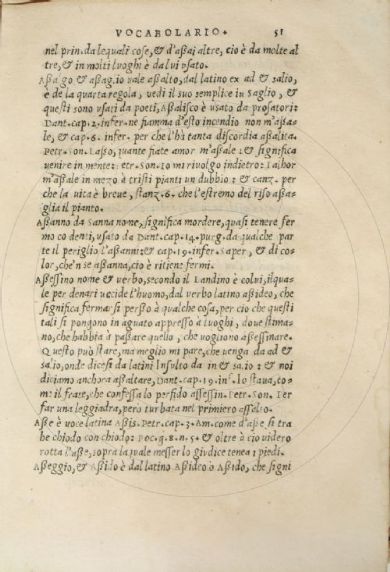 VOCABOLARIO. 51
nel prin. da lequali cose, & d'aßai altre, cio è da molte al
tre, & in molti luoghi è da lui usato.
Aßago & aßagio uale aßalto, dal latino ex ad & salio,
è de la quarta regola, uedi il suo semplice in Saglio, &
questi sono usati da poeti, Aßalisco è usato da prosatori:
Dant. cap. 2. infer. ne fiamma d'esto incendio non m'aßa-
le, & cap. 6. infer. per che l'hà tanta discordia aßalita.
Petr. son. Laßo, quante fiate amor m'aßale: & significa
uenire in mente: etr. Son. io mi riuolgo indietro: Talhor
m'aßale in mezo à tristi pianti un dubbio: & canz. per
che la uita è breue, stanz. 6. che l'estremo del riso aßa-
glia il pianto.
Aßanno da Sanna nome, significa mordere, quasi tenere fer
mo co denti, usato da Dant. cap. 14. purg. da qualche par
te il periglio l'aßanni: & cap. 19. infer. Saper, & di co-
lor, che'n se aßanna, cio è ritiene fermi.
Aßeßino nome & uerbo, secondo il Landino è colui, ilqua-
le per denari uccide l'huomo, dal uerbo latino aßideo, che
significa fermarsi perßo à qualche cosa, per cio che questi
tali si pongono in aguato appreßo à luoghi, doue stima-
no, che habbia à paßare quello, che uogliono aßeßinare.
Questo può stare, ma meglio mi pare, che uenga da ad &
salio, onde dicesi da latini Insulto da in & salio: & noi
diciamo anchora aßaltare, Dant. cap. 19. inf. Io staua, co-
me il frate, che confeßa lo perfido aßeßin. Petr. Son. Per
far una leggiadra, pero turbata nel primiero aßalto.
Aße è uoce latina Aßis. Petr. cap. 3. Am. come d'aße si tra
he chiodo con chiodo: Boc. g. 8. n. 5. & oltre à cio uidero
rotta l'aße, sopra la quale messer lo giudice tenea i piedi.
Aßeggio, & Aßido è dal latino Aßideo ò Aßido, che signi